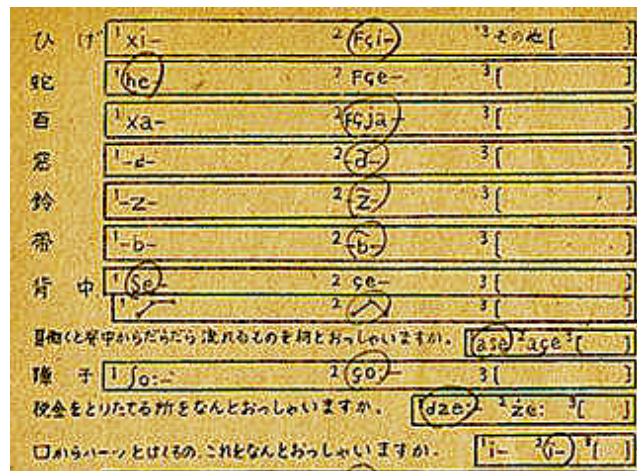 ひげ 1 xi- 2 Fçi- 3 その他 [ ]
蛇 1 he 2 Fçe- 3 [ ]
百 1 xa- 2 Fçja- 3 [ ]
窓 1 -d- 2 -d̃- 3 [ ]
鈴 1 -z- 2 -z̃- 3 [ ]
帯 1 -b- 2 -b̃- 3 [ ]
背中 1 Se- 2 çe- 3 [ ]
1 2 3 [ ]
夏働くと背中からだらだら流れるものを何とおっしゃいますか。 1 ase 2 açe 3 [ ]
障子 1 ʃo:- 2 ço:- 3 [ ]
税金をとりたてる所をなんとおっしゃいますか。 1 dze:- 2 ze: 3 [ ]
口からハーッとはくもの、これをなんとおっしゃいますか。 1 i- 2 3 [ ]